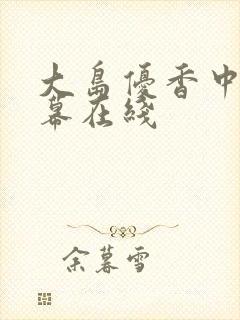 大島優香中
幕在綫
余暮雪